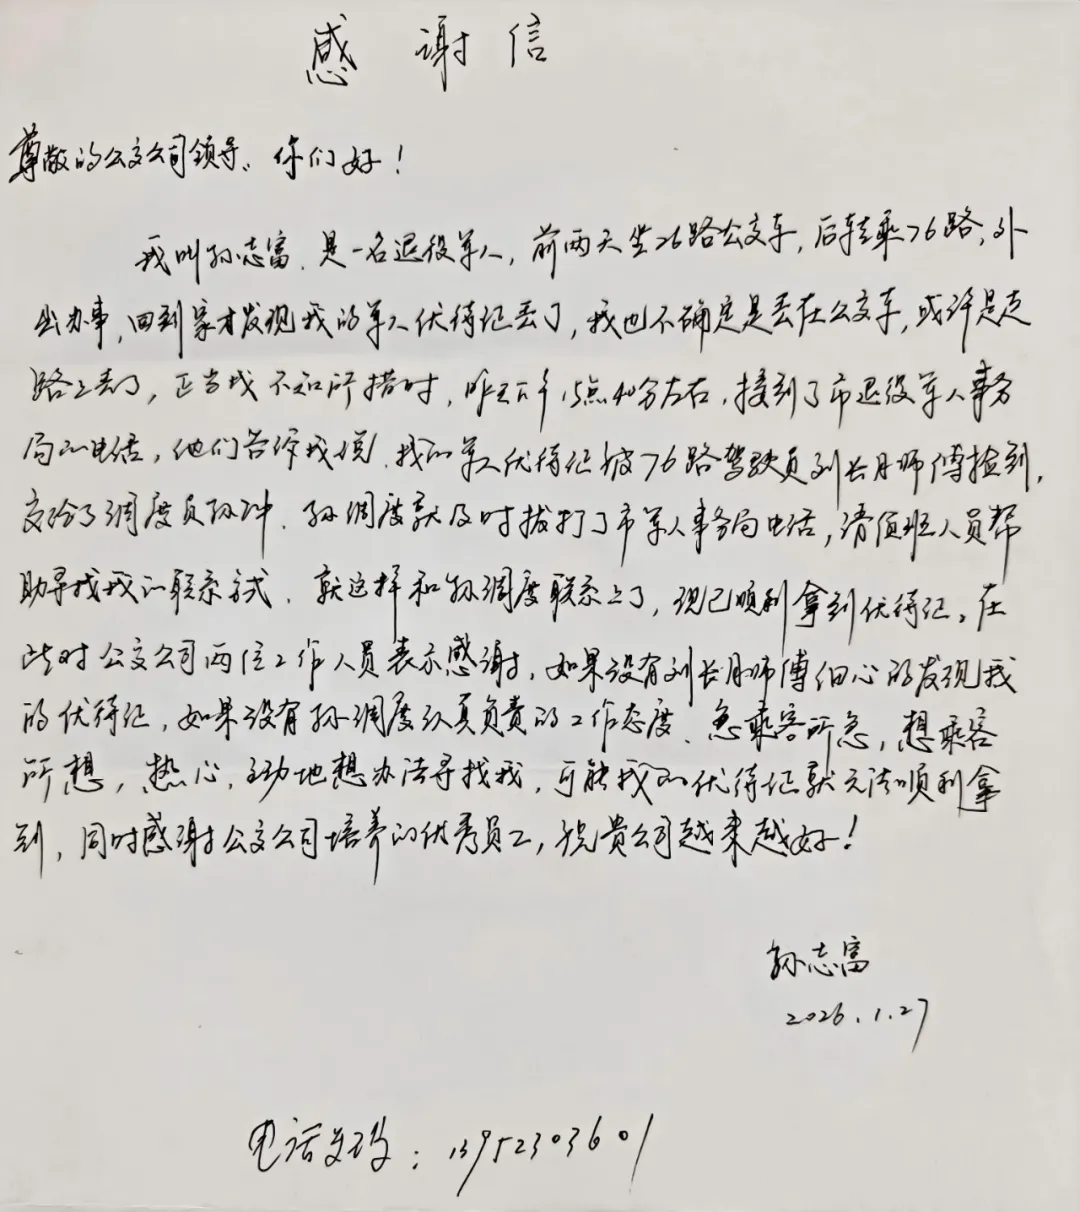 感谢信
尊敬的公交公司领导、你们好！
我叫孙志富，是一名退役军人，前两天坐26路公交车，后转乘76路，外
出办事，回到家才发现我的军人优待证丢了，我也不确定是丢在公交车，或许是走
路上丢了，正当我不知所措时，昨天下午15点40分左右，接到了市退役军人事务
局的电话，他们告诉我说，我的军人优待证被76路驾驶员刘长月师傅捡到，
交给了调度员孙冲，孙调度就及时拨打了市军人事务局电话，请值班人员帮
助寻找我的联系方式，就这样和孙调度联系上了，现已顺利拿到优待证。在
此对公交公司两位工作人员表示感谢，如果没有刘长月师傅细心的发现我
的优待证，如果没有孙调度认真负责的工作态度、急乘客所急，想乘客
所想，热心，主动地想办法寻找我，可能我的优待证就无法顺利拿
到，同时感谢公交公司培养的优秀员工，祝贵公司越来越好！
孙志富
2026.1.27
电话号码：13952303601